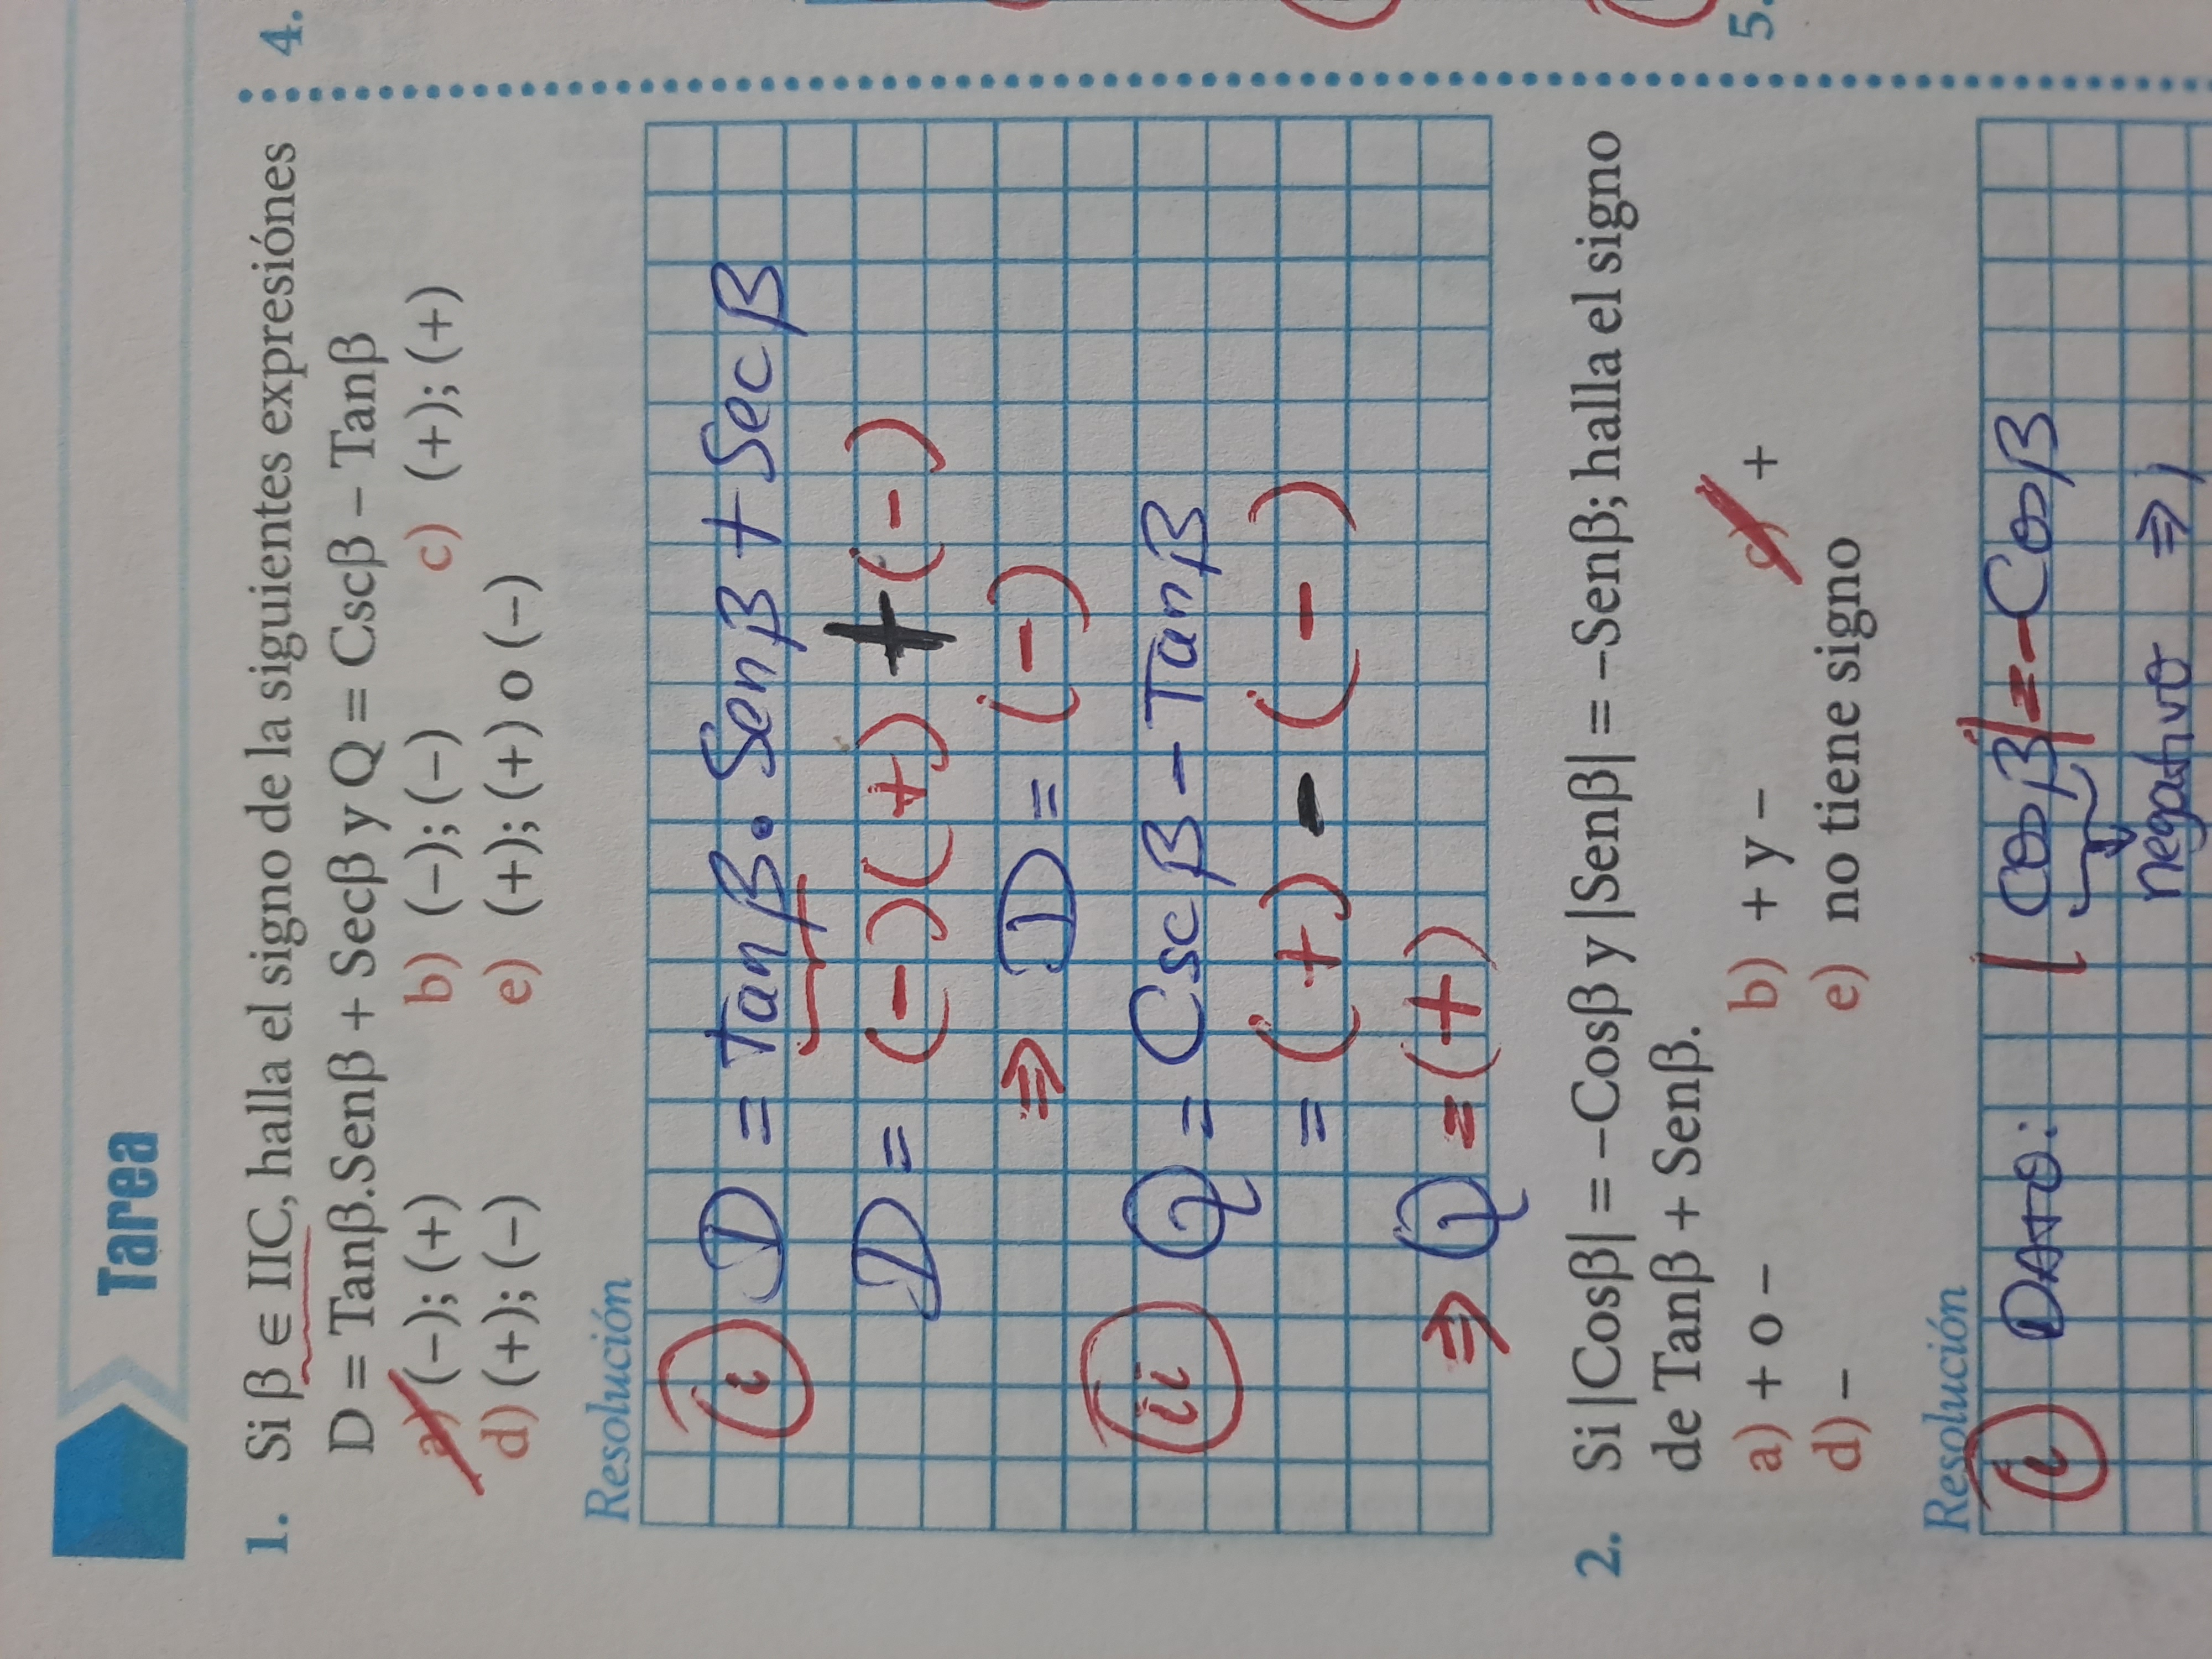 Tarea
1. Si β ∈ IIC, halla el signo de la siguientes expresiónes
D = Tanβ.Senβ + Secβ y Q = Cscβ – Tanβ
a) (–); (+) b) (–); (–) c) (+); (+)
d) (+); (–) e) (+); (+) o (–)
Resolución
i D = tan β . Sen β + Sec β
D = (-)(+) + (-)
⇒ D = (-)
ii Q = Csc β - Tan β
= (+) - (-)
⇒ Q = (+)
2. Si |Cosβ| = –Cosβ y |Senβ| = –Senβ; halla el signo
de Tanβ + Senβ.
a) + o – b) + y – c) +
d) – e) no tiene signo
Resolución
i DATO: | cos β | = - Cos β
negativo ⇒
4.
5.